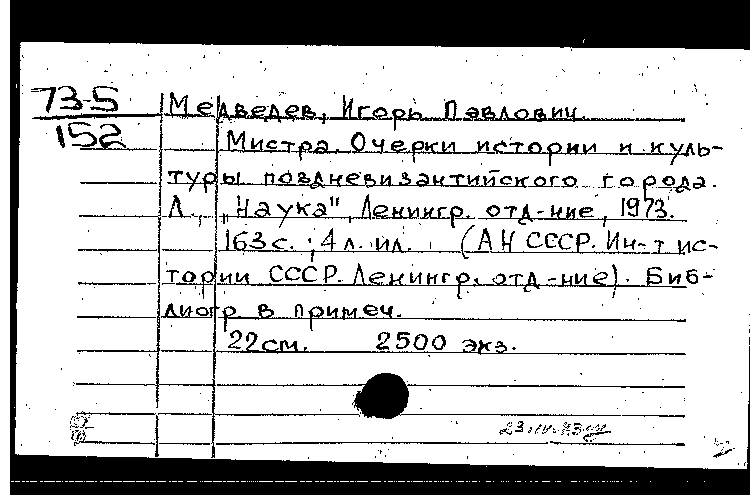 73-5
152
Медведев, Игорь Павлович.
Мистра. Очерки истории и куль-
туры поздневизантийского города.
Л., "Наука", Ленингр. отд-ние, 1973.
163 с.; 4 л. ил. (АН СССР. Ин-т ис-
тории СССР. Ленингр. отд-ние). Биб-
лиогр. в примеч.
22 см. 2500 экз.